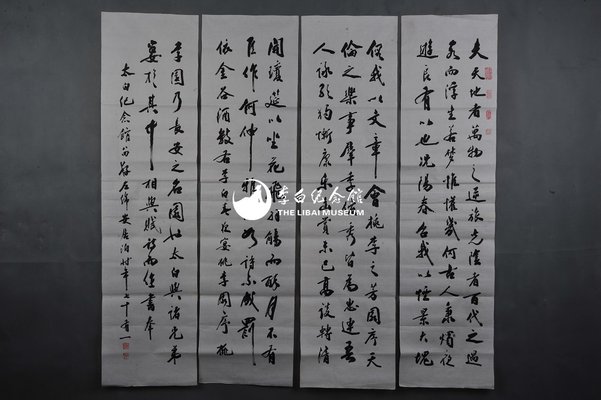 夫天地者萬物之逆旅光陰者百代之過
客而浮生若夢惟懽幾何古人秉燭夜
遊良有以也況陽春召我以煙景大塊
假我以文章會桃李之芳園序天
倫之樂事羣季俊秀皆爲惠連吾
人詠歌獨慚康樂幽賞未已高談轉清
開瓊筵以坐花飛羽觴而醉月不有
佳作何伸雅懷如詩不成罰
依金谷酒數右李白春夜宴桃李園序桃
李園乃長安之名園也太白與諸兄弟
宴於其中相與賦詩而作書奉
太白紀念館左綿安居泊時年七十有一
李白纪念馆
THE LIBAI MUSEUM